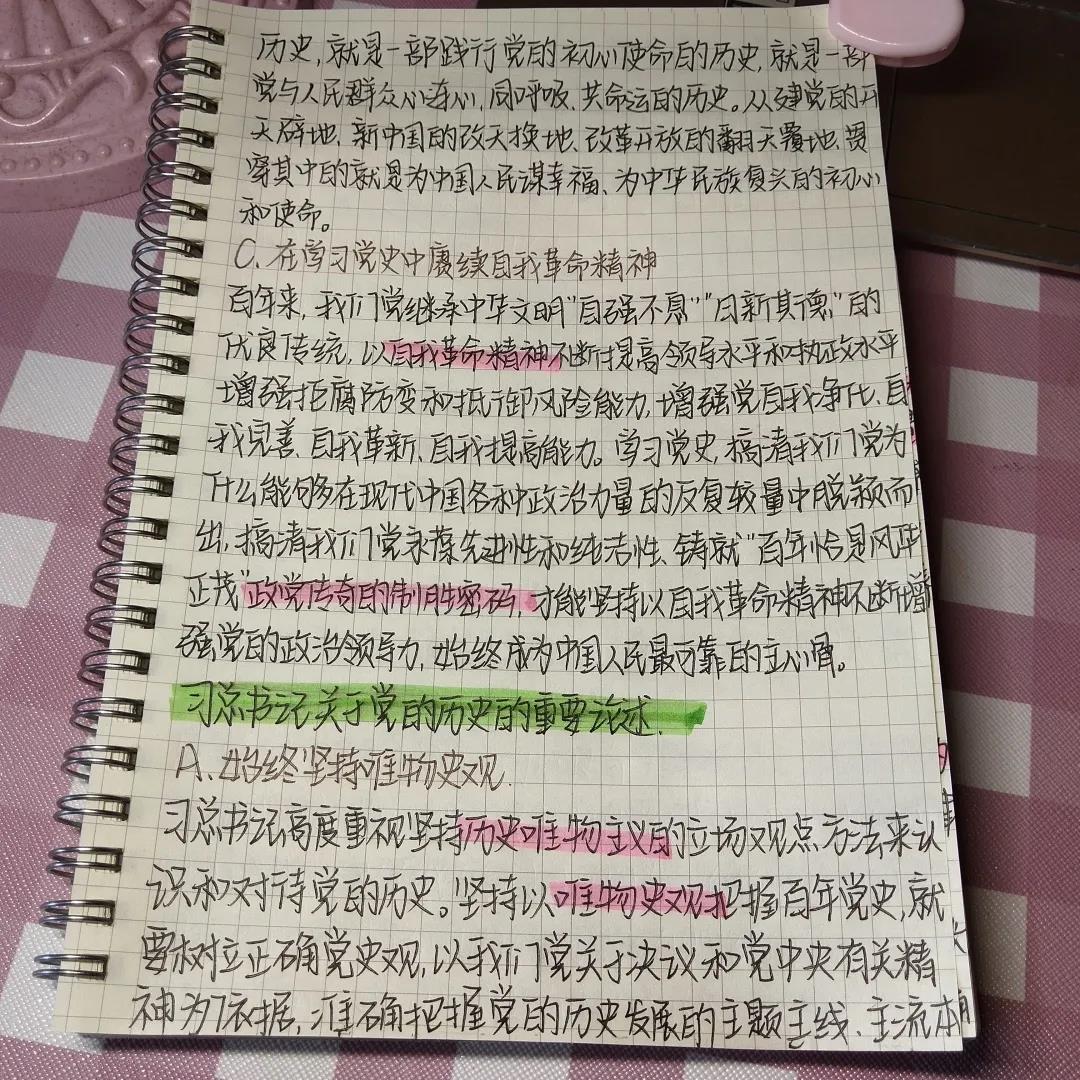 历史,就是一部践行党的初心使命的历史,就是一部
党与人民群众心连心、同呼吸、共命运的历史。从建党的开
天辟地、新中国的改天换地、改革开放的翻天覆地,贯
穿其中的就是为中国人民谋幸福、为中华民族复兴的初心
和使命。
C.在学习党史中赓续自我革命精神
百年来,我们党继承中华文明“自强不息”“日新其德”的
优良传统,以自我革命精神不断提高领导水平和执政水平
增强拒腐防变和抵御风险能力,增强党自我净化、自
我完善、自我革新、自我提高能力。学习党史,搞清我们党为
什么能够在现代中国各种政治力量的反复较量中脱颖而
出,搞清我们党永葆先进性和纯洁性、铸就“百年恰是风华
正茂”政党传奇的制胜密码,才能坚持以自我革命精神不断增
强党的政治领导力,始终成为中国人民最可靠的主心骨。
习总书记关于党的历史的重要论述.
A.始终坚持唯物史观.
习总书记高度重视坚持历史唯物主义的立场观点方法来认
识和对待党的历史。坚持以唯物史观把握百年党史,就
要树立正确党史观,以我们党关于决议和党中央有关精
神为依据,准确把握党的历史发展的主题主线、主流本